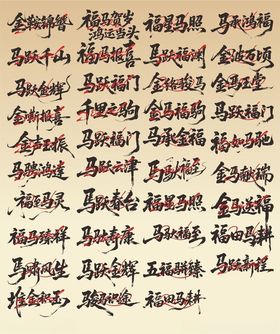 金鞍锦簪 福马贺岁 鸿运当头 福星马照 马承鸿福
马跃千山 福马报喜 马跃福渊 金波万顷
马跃金辉 马跃福门 金钟骏马 金马玉堂
金蹄报喜 千里之驹 金马福驹 马蹄踏福
金声玉振 马跃福门 马承金福 福如马驰
马骋鸿途 马跃云津 马献瑞
福至马灵 马跃春台 福星马照 金马送福
福马臻祥 马跃奇康 马耿福至 福田马耕
马啸风生 马跃金辉 五福骈臻 马跃新程
堆金积玉 骏马识途 福田马耕